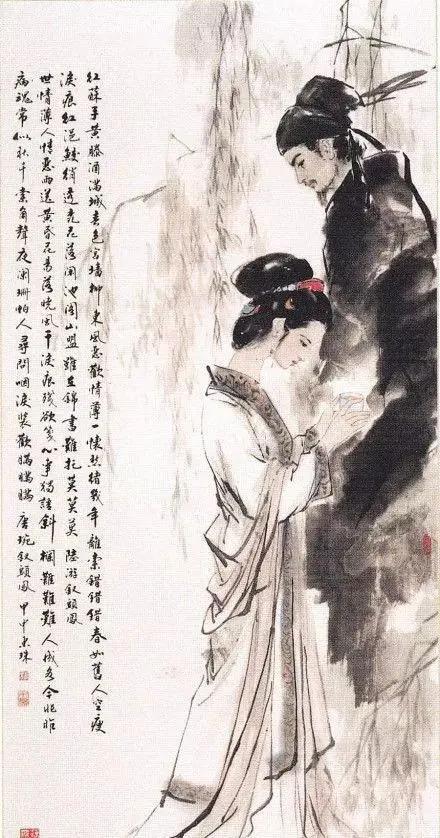 红酥手黄滕酒满城春色宫墙柳東風惡歡情薄一懷愁绪幾年離索错错错春如舊人空瘦
淚痕红浥鲛绡透桃花落闲池阁山盟雖在錦書難托莫莫莫 陸游釵頭鳳
世情薄人情惡雨送黄昏花易落晓風干淚痕残欲笺心事獨語斜欄難難難人成各今非昨
病魂常似秋千索角聲夜闌珊怕人尋問咽淚装歡瞞瞞瞞 唐琬釵頭鳳 甲申東珠